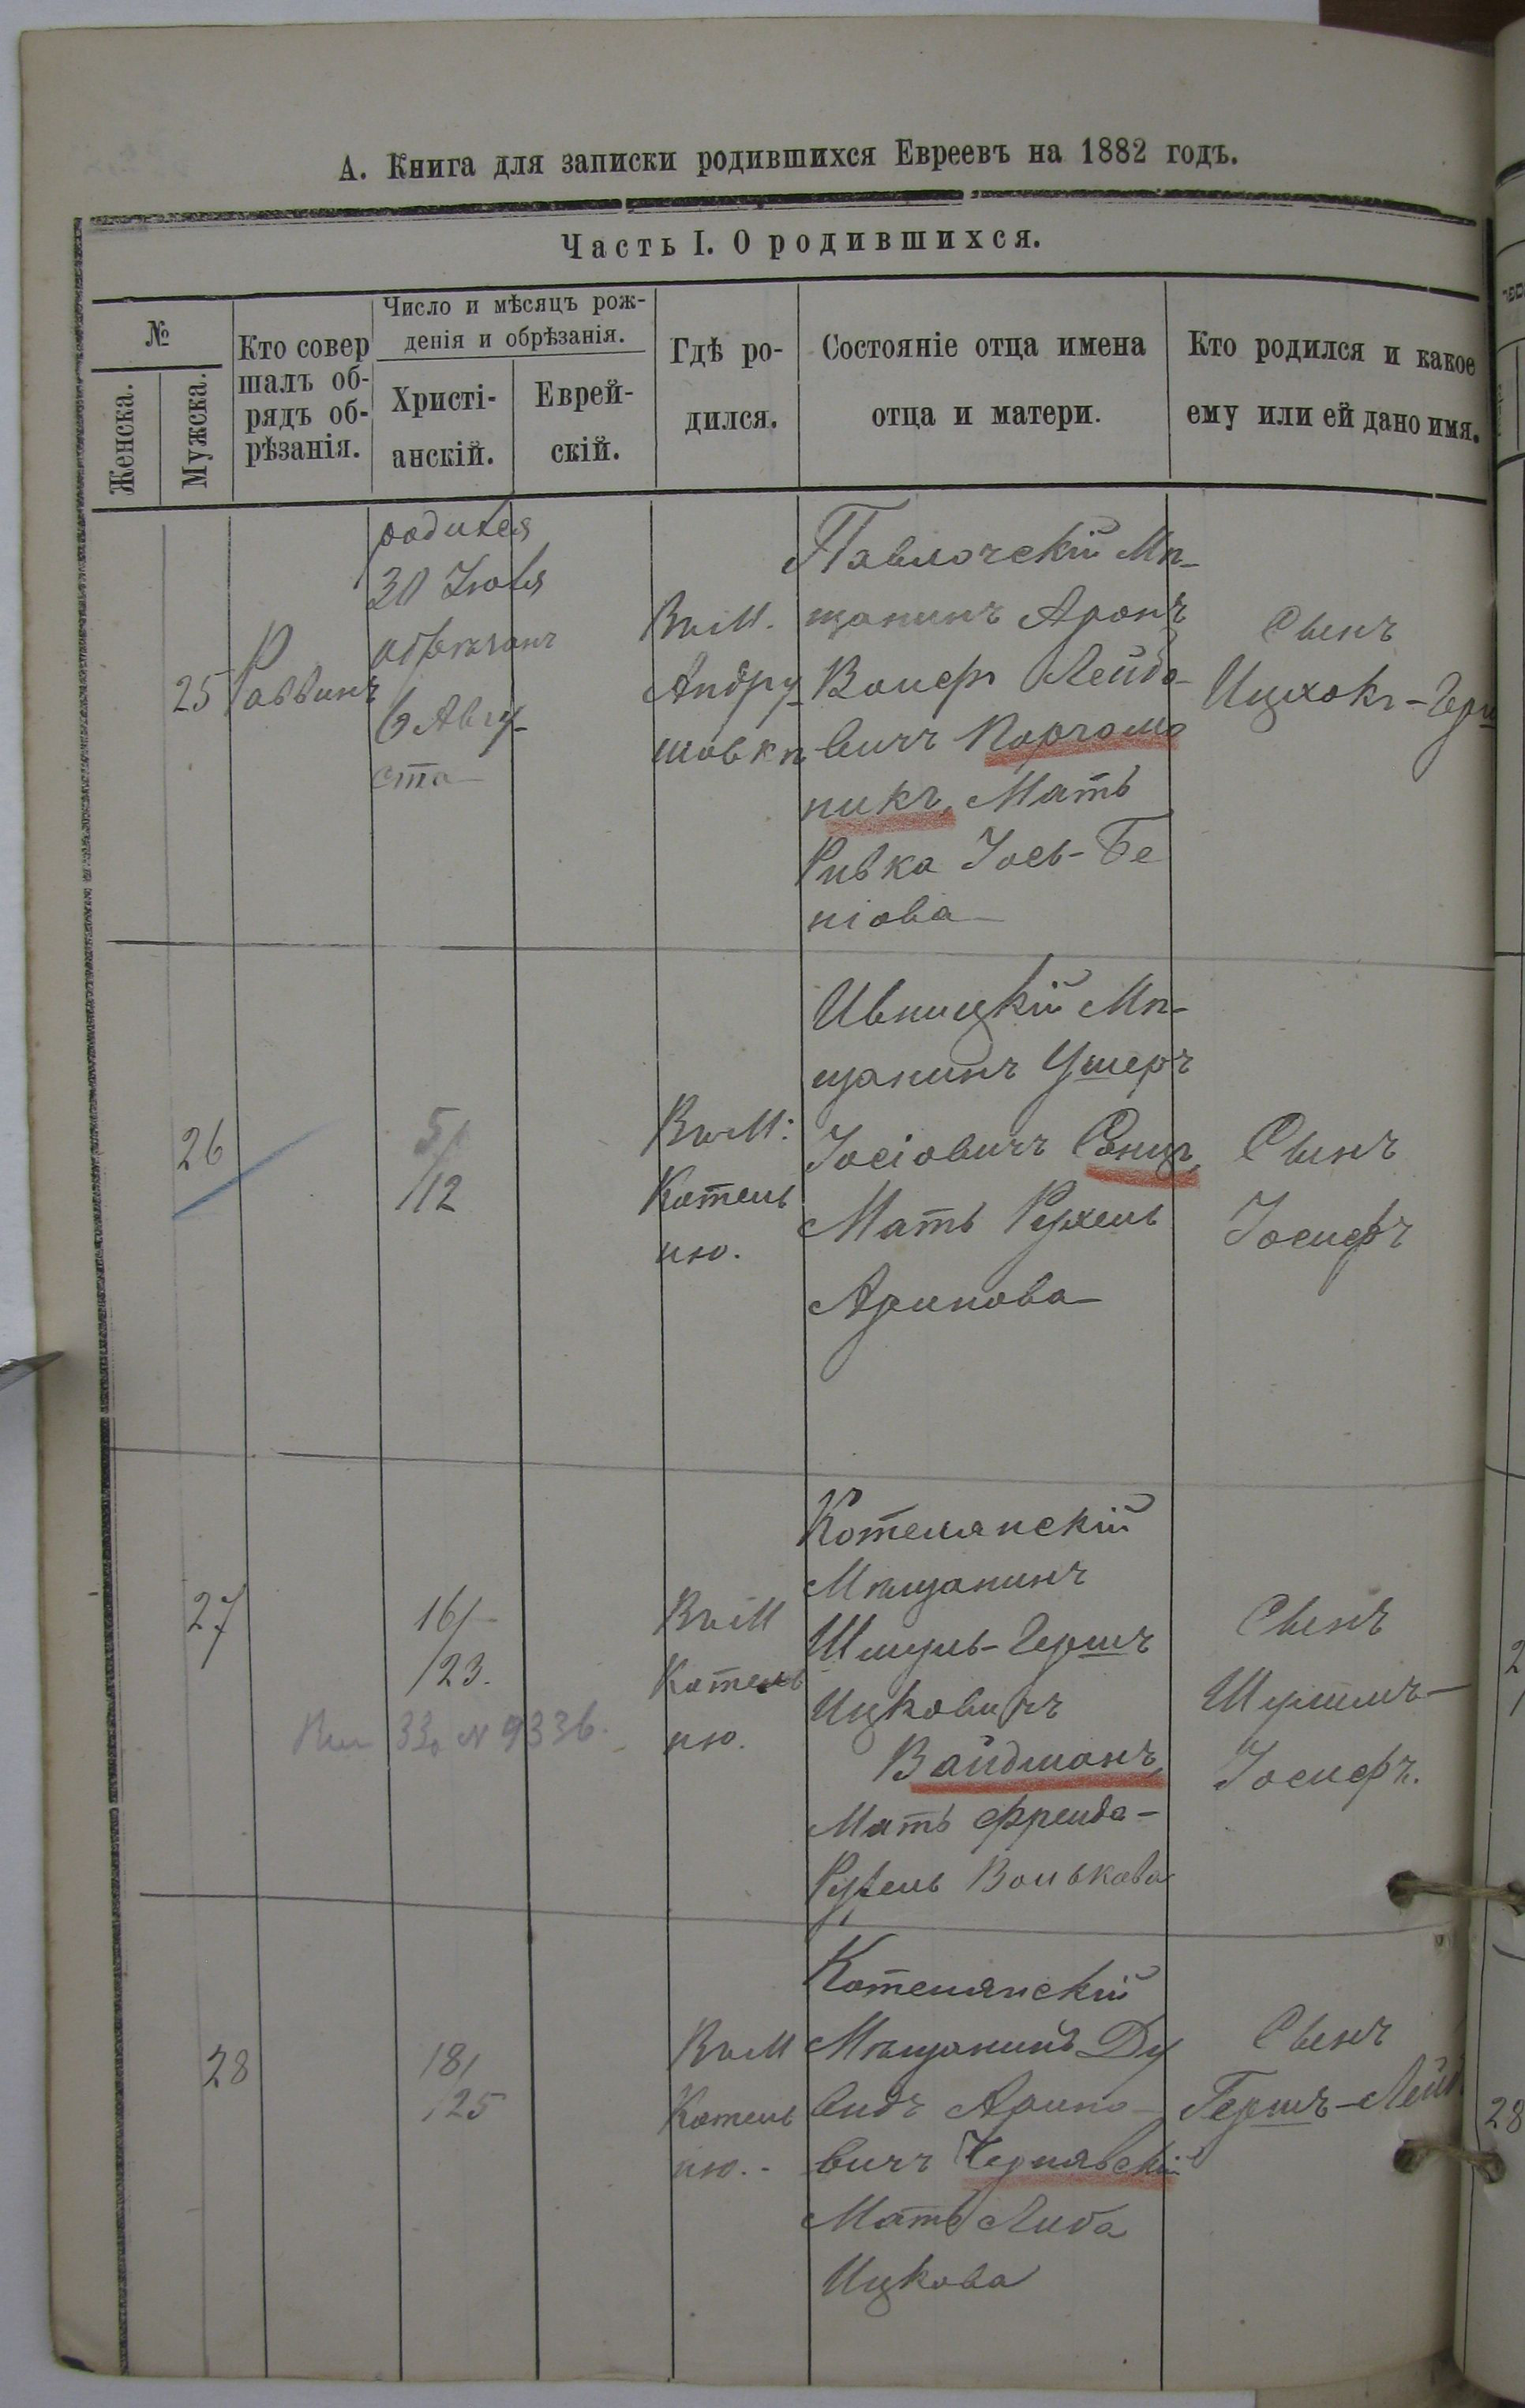 А. Книга для записки родившихся Евреевъ на 1882 годъ.
Часть I. О родившихся.
№
Женска.
Мужска.
Кто совер
шалъ об-
рядъ об-
рѣзанія.
Число и мѣсяцъ рож-
денія и обрѣзанія.
Христі-
анскій.
Еврей-
скій.
Гдѣ ро-
дился.
Состояніе отца имена
отца и матери.
Кто родился и какое
ему или ей дано имя.
25
Раввинъ
родился
30 Іюля
обрѣзанъ
6 Авгу-
ста
Въ М.
Андру-
шовкѣ
Паволочскій Мѣ-
щанинъ Аронъ
Вольфъ Лейбо-
вичъ
никъ, Мать
Ривка Іось-Бе
ніова
Сынъ
Ицхокъ-Герш
26
5/
/12
Въ М.
Котель
нѣ.
Ивницкій Мѣ-
щанинъ Ушеръ
Іосіовичъ
Мать Рухель
Аринова
Сынъ
Іосифъ
27
16/
/23.
№ 9336.
Въ М
Котель
нѣ.
Котелянскій
Мѣщанинъ
Шмуль-Гершъ
Ицковичъ
Вайдманъ,
Мать Фрейда-
Рухель Волькова
Сынъ
Іосифъ.
28
18/
/25
Въ М
Котель
нѣ.
Котелянскій
Мѣщанинъ Ду
видъ Арино-
вичъ Чернявскій
Мать Либа
Ицкова
Сынъ
Гершъ-Лейб
28